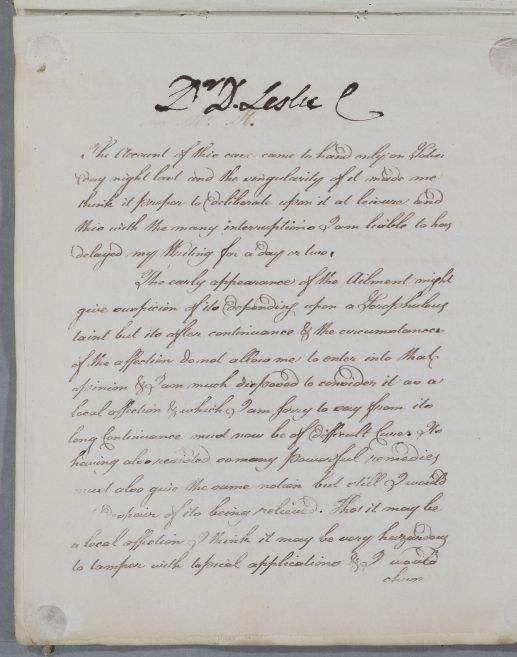 Dr D. Leslie
The Account of this case came to hand only on Satur-
day night last and the singularity of it made me
think it proper to deliberate upon it at leisure and
this with the many interruptions I am liable to has
delayed my Writing for a day or two.
The early appearance of the Ailment might
give suspicion of its depending upon a Scrophulous
taint but its after continuance & the circumstances
of the affection do not allow me to enter into that
opinion & I am much disposed to consider it as a
local affection & which I am sorry to say from its
long Continuance must now be of difficult Cure. Its
having also resisted so many powerful remedies
must also give the same notion but still I would
despair of its being relieved. Tho it may be
a local affection I think it may be very hazardous
to tamper with topical applications & I would
chuse